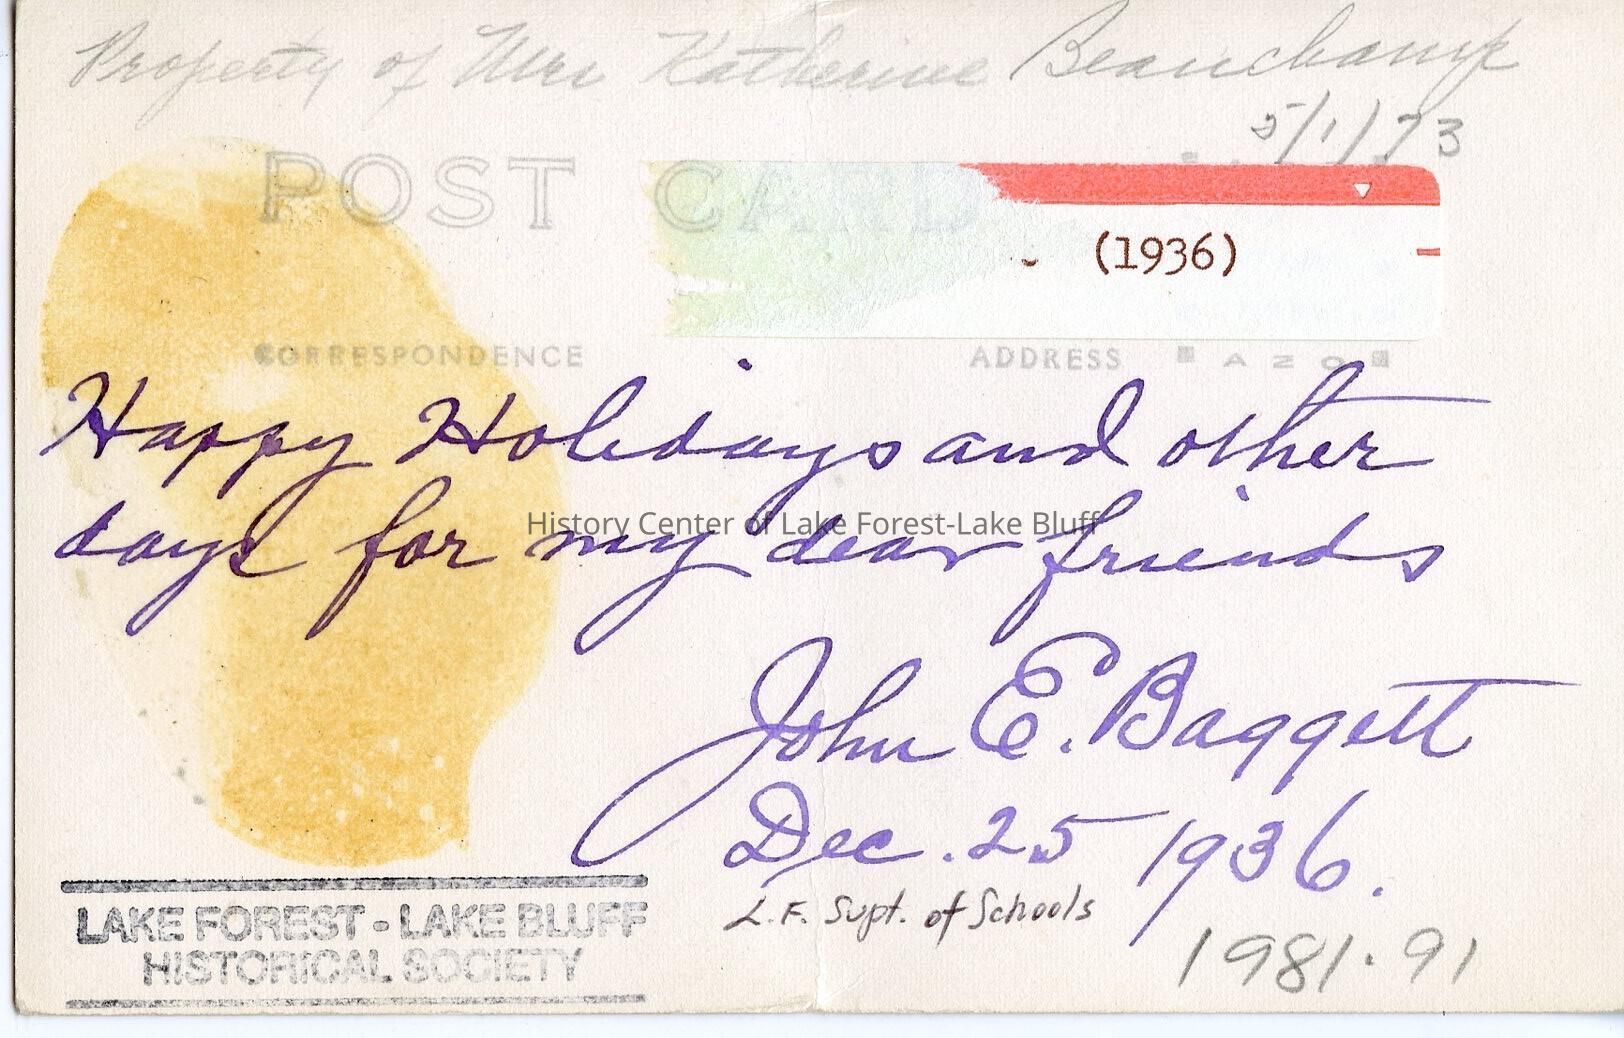 Property of Mrs Katherine Beauchamp
5/1/73
POST CARD
(1936)
CORRESPONDENCE
ADDRESS
AZO
Happy Holidays and other
days for my dear friends
History Center of Lake Forest-Lake Bluff
John E. Baggett
Dec. 25 1936.
L.F. Supt. of Schools
LAKE FOREST - LAKE BLUFF
HISTORICAL SOCIETY
1981.91